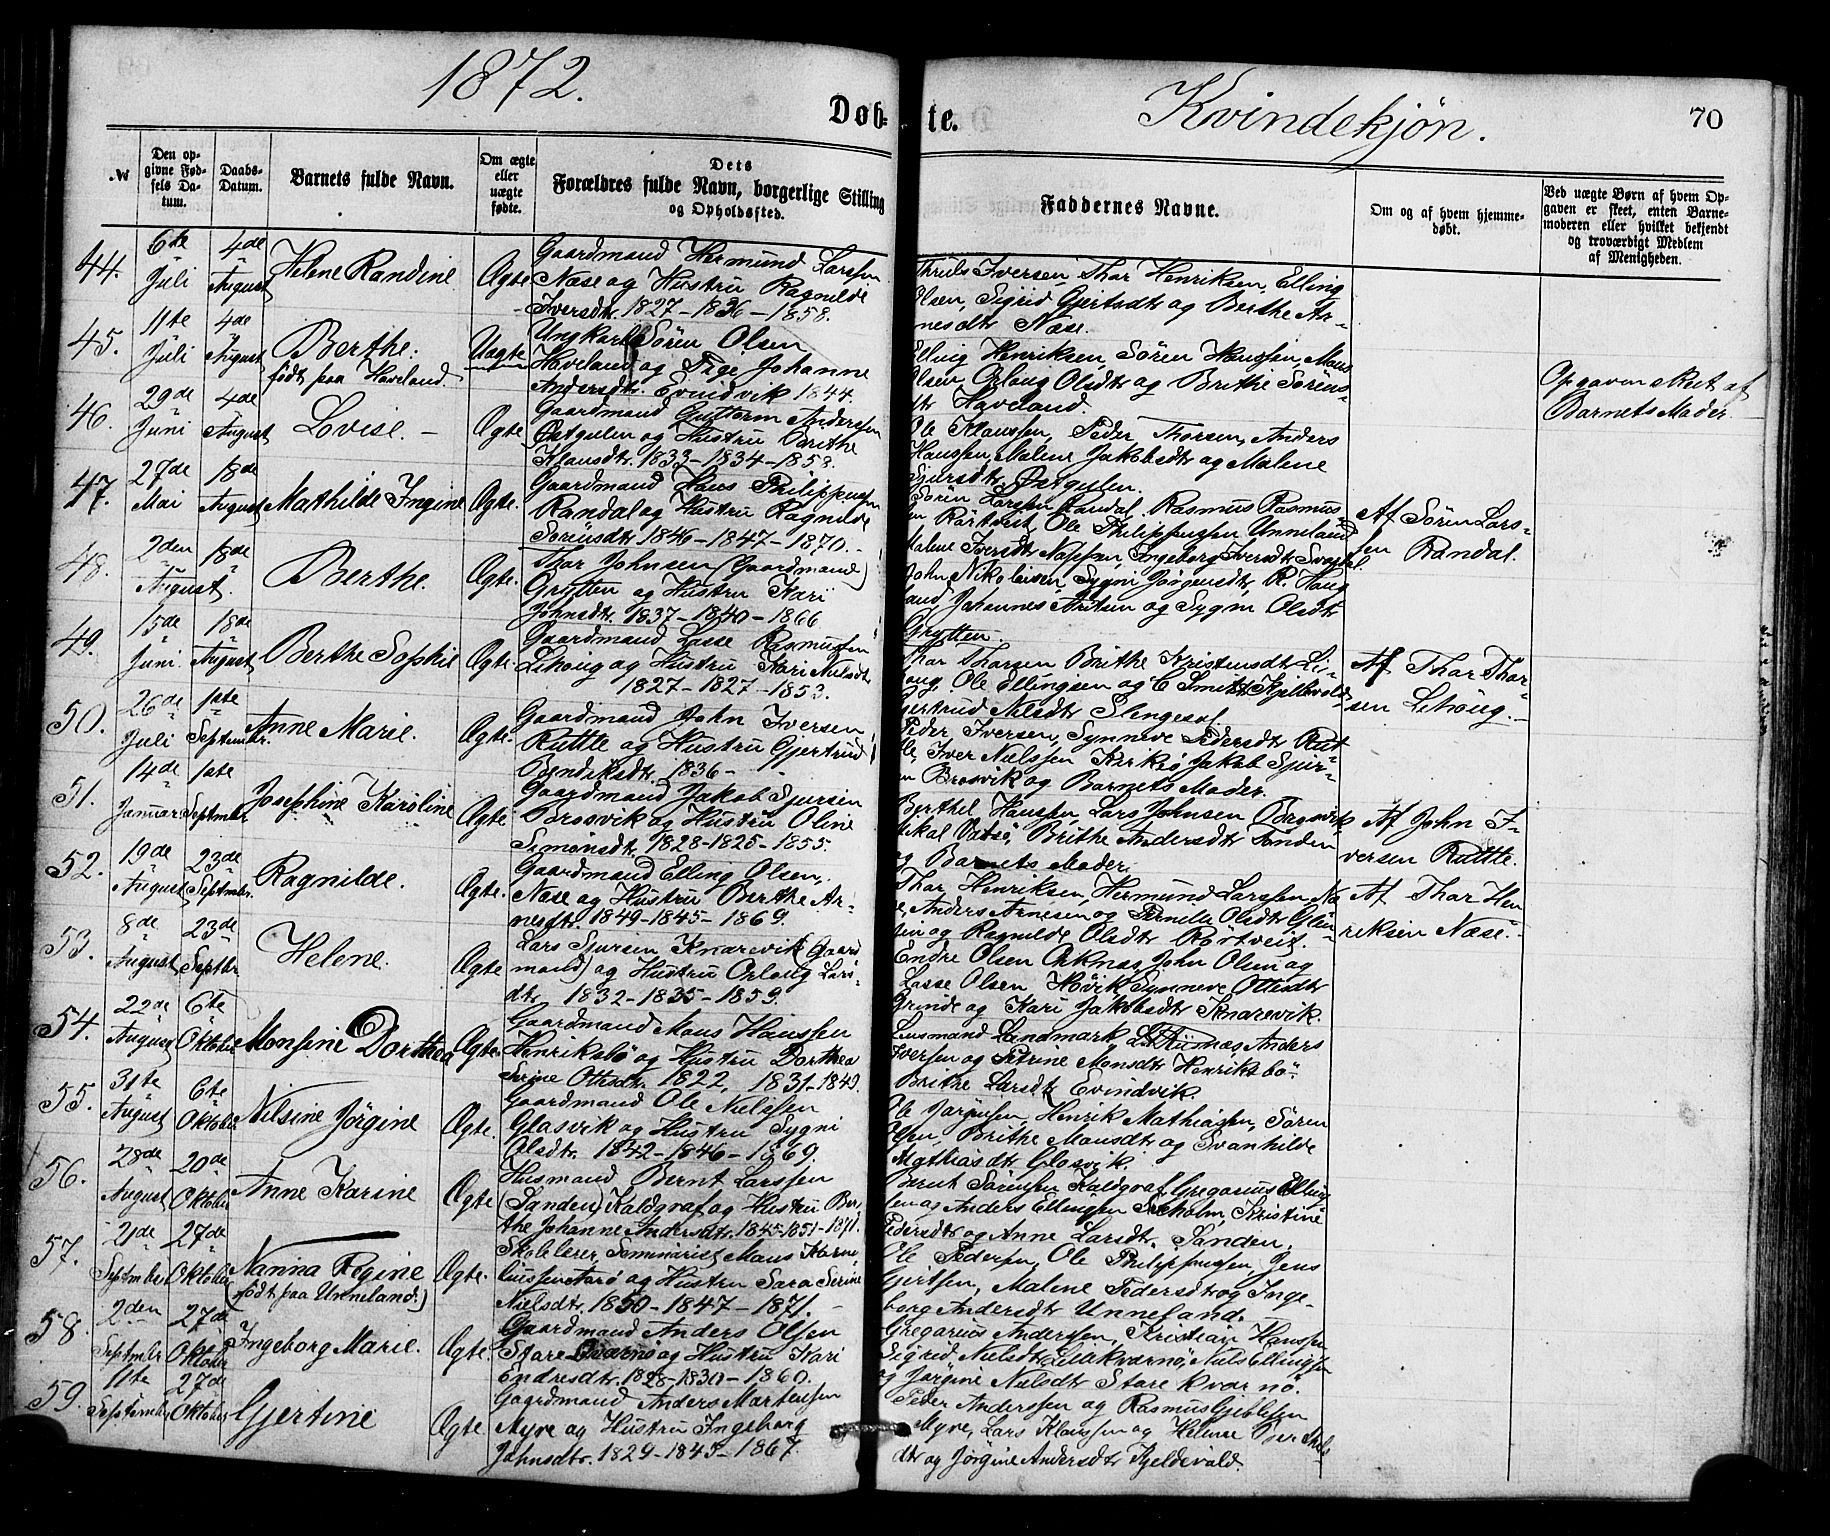 1872.
Døb-
te.
Kvindekjøn.
70
№
Den op-
givne Fød-
sels Da-
tum.
Daabs-
Datum.
Barnets fulde Navn.
Om ægte
eller
uægte
fødte.
Dets
Forældres fulde Navn, borgerlige Stilling
og Opholdssted.
Faddernes Navne.
Om og af hvem hjemme-
døbt.
Ved uægte Børn af hvem Op-
gaven er skeet, enten Barne-
moderen eller hvilket bekjendt
og troværdigt Medlem
af Menigheden.
44.
6te
Juli
4de
August
Helene Randine
Ægte
Gaardmand Hermund Larssen
Næse og Hustru Ragnilde
Iversdtr. 1827-1836-1858.
Iversen, Thar Henriksen, Elling
Olsen, Sigrid Gjertsdtr og Berthe Ar-
nesdtr Næse.
45.
11te
Juli
4de
August
Berthe.
født paa Haveland.
Uægte
Ungkarl Søren Olsen
Haveland og Pige Johanne
Andersdtr. Evindvik 1844.
Elling Henriksen, Søren Hanssen, Mons
Olsen, Orloug Olsdtr og Brithe Sørens-
dtr Haveland.
Opgaven skeet af
Barnets Moder.
46.
29de
Juni
4de
August
Lovise.
Ægte
Gaardmand Guttorm Anderssen
Østgulen og Hustru Brithe
Klausdtr. 1833-1834-1858.
Ole Klaussen, Peder Thorsen, Anders
Hanssen, Malene Jakobsdtr og Malene
Sjursdtr Østgulen.
47.
27de
Mai
18de
August
Mathilde Ingine
Ægte.
Gaardmand Hans Philippussen
Randal og Hustru Ragnilde
Sørensdtr 1846-1847-1870.
Søren Larssen Randal, Rasmus Rasmus-
sen Rørtveit, Ole Philippussen Unneland
Malene Iversdtr Ingeborg Iversdtr
Af Søren Lars-
sen Randal.
48.
2den
August.
18de
Berthe.
Ægte.
Thar Johnsen (Gaardmand)
Grytten og Hustru Kari
Johnsdtr. 1837-1840-1866
John Nikolaisen, Sygni Jørgensdtr, R. Haug
land Johannes og Sygni Olsdtr
Grytten.
49.
15de
Juni.
18de
August
Berthe Sophie
Ægte.
Gaardmand Lasse Rasmussen
Lihoug og Hustru Kari Nilsdtr.
1827-1827-1853.
Thar Tharsen Brithe Kristensdtr Li-
houg, Ole Ellingsen og
Gjertrud Nilsdtr Slengesol.
Af Thar Thar-
sen Lihoug.
50.
26de
Juli
1ste
Septembr.
Anne Marie.
Ægte.
Gaardmand John Iversen
Ruttle og Hustru Gjertrud
Bendiksdtr. 1836-
Peder Iversen, Synneve Pedersdtr Rut-
le, Iver Nielssen Kirkeø Jakob Sjur-
sen Brosvik og Barnets Moder.
51.
14de
Januar
1ste
Septembr.
Josephine Karoline
Ægte
Gaardmand Jakob Sjursen
Brosvik og Hustru Oline
Simonsdtr. 1828-1825-1855.
Berthel Hanssen, Lars Johnsen Brosvik
Mikal Brithe Andersdtr Tanden
og Barnets Moder.
Af John I-
versen Ruttle.
52.
19de
August
23de
Septembr.
Ragnilde.
Ægte.
Gaardmand Elling Olsen,
Næse og Hustru Berthe Ar-
nesdtr. 1849-1845-1869.
Thar Henriksen, Hermund Larssen Næ-
se, Anders Arnesen og Pernille Olsdtr
og Ragnilde Olsdtr Rørtveit.
Af Thar Hen
riksen Næse.
53.
8de
August
23de
Septbr
Helene.
Ægte
Lars Sjursen Knarevik (Gaard-
mand) og Hustru Orloug Lars-
dtr. 1832-1835-1859.
Endre Olsen John Olsen og
Lasse Olsen Høvik Synneve Ottesdtr
Grinde og Kari Jakobsdtr Knarevik.
54.
22de
August
6te
Oktober
Monsine Dorthea
Ægte.
Gaardmand Mons Hanssen
Henriksbø og Hustru Dorthea
Serine Ottesdtr. 1822, 1831-1849.
Lensmand Landmark, Anders
Iversen og Petrine Monsdtr Henriksbø
Brithe Larsdtr Evindvik.
55.
31te
August
6te
Oktober
Nilsine Jørgine
Ægte.
Gaardmand Ole Nielssen
Glosvik og Hustru Sygni
Olsdtr. 1842-1846-1869.
Ole Jørgensen, Henrik Mathiassen, Søren
Olsen, Brithe Monsdtr og Svanhilde
Mathiasdtr Glosvik.
56.
28de
August
20de
Oktober
Anne Karine
Ægte
Husmand Bernt Larssen
(Sanden) Kaldgraf og Hustru Ber-
the Johanne Andersdtr. 1845-1851-1871.
Bernt Sørensen Kaldgraf, Gregarius Elling-
sen og Anders Ellingsen Kristine
Pedersdtr og Anne Larsdtr. Sanden.
57.
21de
Septembr
27de
Oktober
Nanna Regine
(født paa Unneland.)
Ægte.
Skolelærer, Seminarist Mons Korne-
liussen Aarø og Hustru Sara Serine
Nielsdtr. 1850-1847-1871.
Ole Pedersen, Ole Philippussen, Jens
Gjertsen, Malene Pedersdtr og Inge-
borg Andersdtr Unneland.
58.
2den
Septembr
27de
Oktober
Ingeborg Marie.
Ægte.
Gaardmand Anders Olsen
Store Kværnø og Hustru Kari
Endresdtr. 1828-1830-1860.
Gregarius Anderssen, Kristian Hanssen
Sigrid Nielsdtr Lillekværnø, Niels Ellingsen
og Jørgine Nielsdtr Store Kværnø.
59.
11te
Septembr
27de
Oktober
Gjertine
Ægte
Gaardmand Anders Martenssen
Myre og Hustru Ingeborg
Johnsdtr. 1829-1845-1867.
Peder Anderssen og Rasmus
Myre, Lars Klaussen og Helene
dtr og Jørgine Andersdtr Kjeldevold.